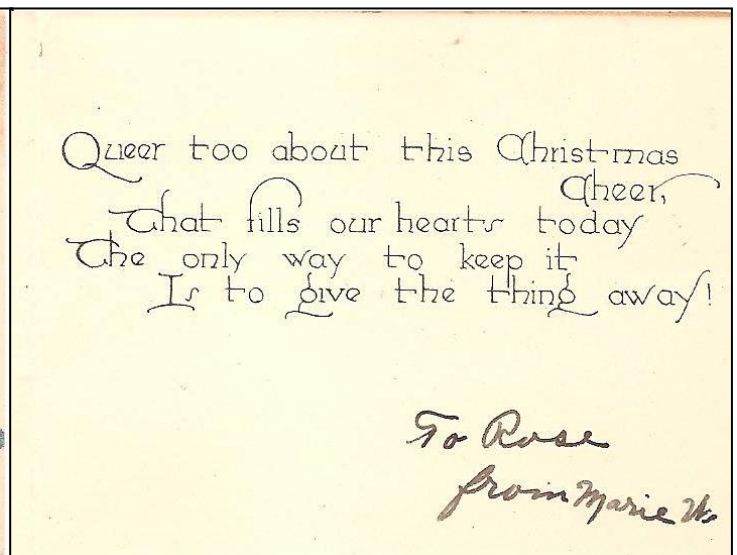 Queer too about this Christmas
Cheer,
That fills our hearts today
The only way to keep it
Is to give the thing away!
To Rose
from Marie W.